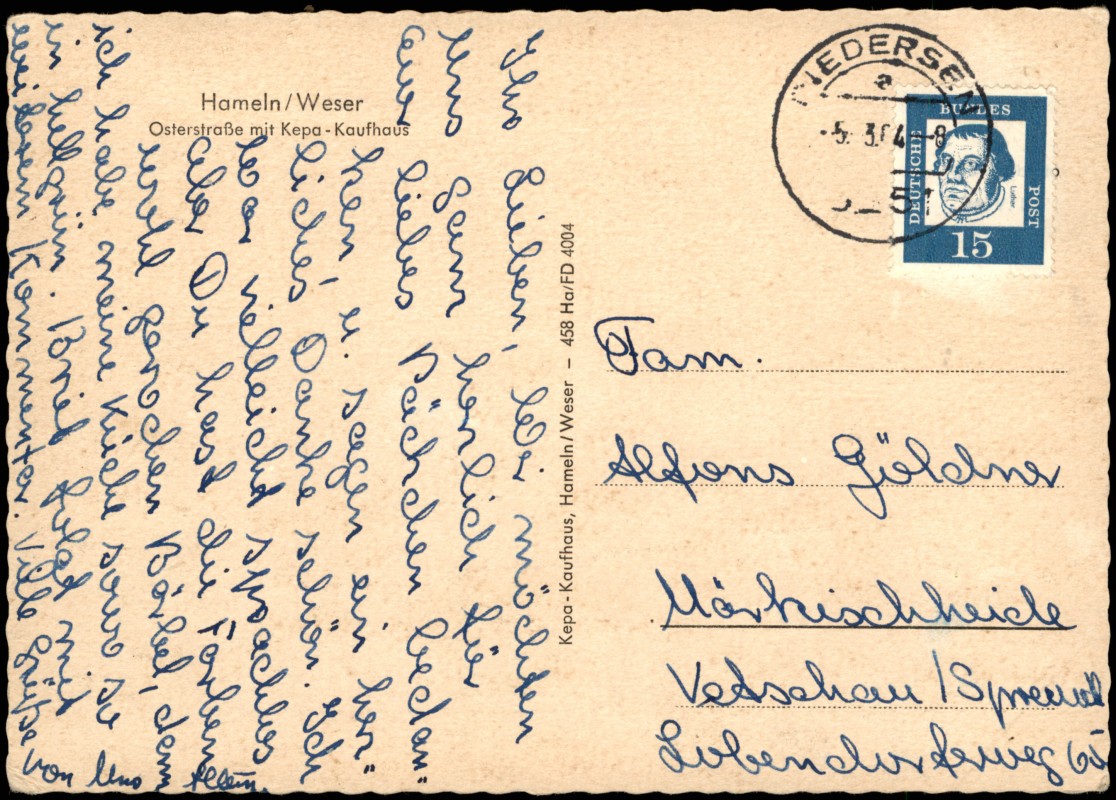 Hameln/Weser
Osterstraße mit Kepa-Kaufhaus
Ihr Lieben, Wir möchten
Uns ganz herlich für
euer liebes Päckchen bedan"
ken, u. sagen ein her"
liches Danke schön. Ich
War vielleicht sprachlos
aber Du hast die Farben
wohl gerochen Bärbel, denn
ich habe meine Küche
in hellgrün. Brief folgt mit
weiterem Kommentar. Viele Grüße
von Uns Allen.
Kepa-Kaufhaus, Hameln/Weser – 458 Ha/FD 4004
NIEDERSEN
a
-5. 3.64 -8
51
DEUTSCHE
BUNDES
POST
Luther
15
Fam.
Alfons Göldner
Märkischheide
Vetschau/Spreewald
Lobendorferweg 65